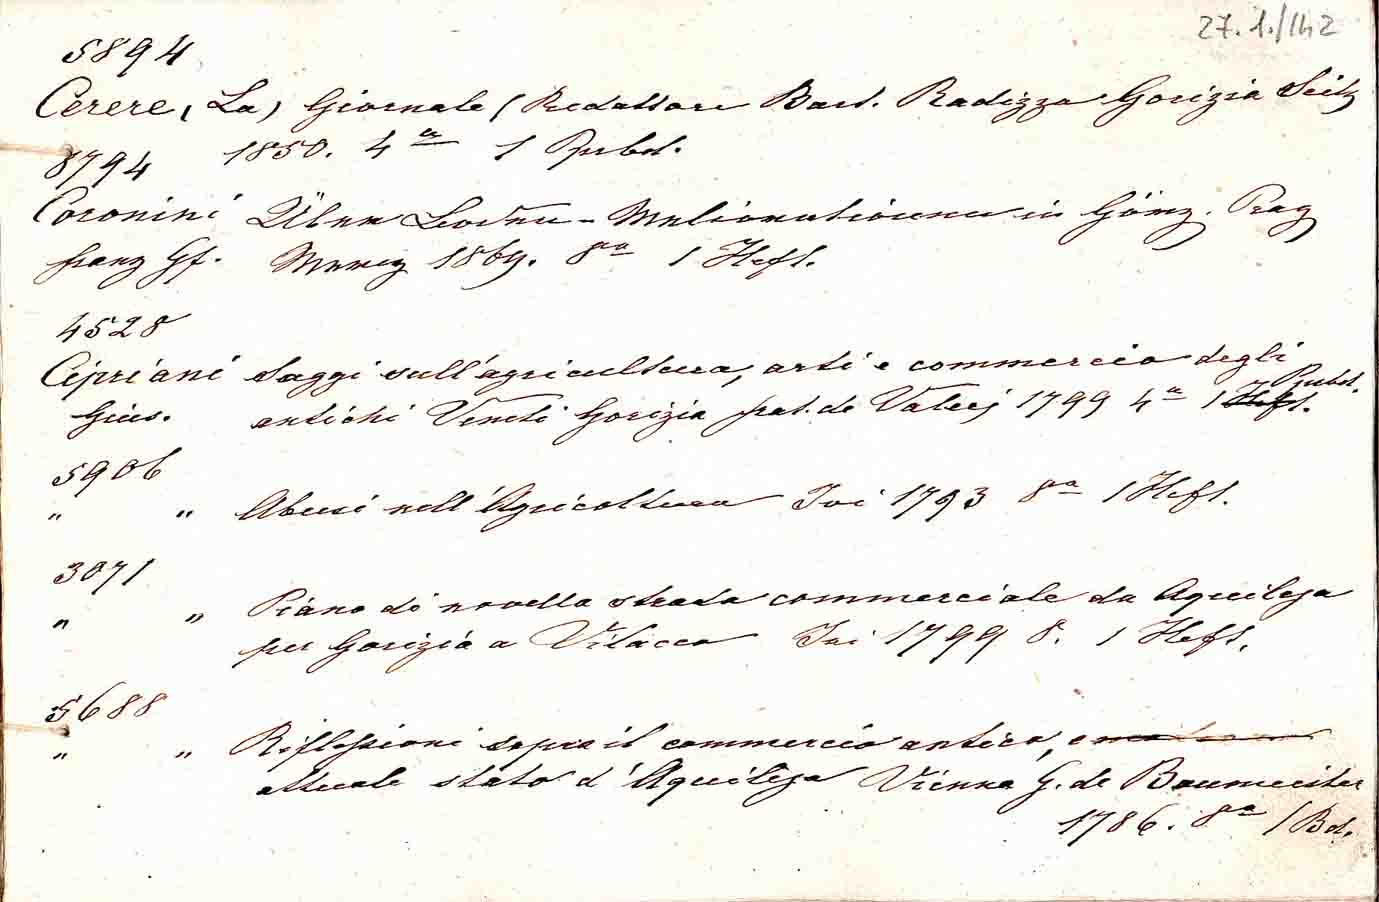 27.1./142
5894
Cerere, (La) Giornale (Redattore Bart. Radizza Gorizia Seitz
1850. 4a 1 Ppbd.
8794
Coronini Über Boden-Meliorationen in Görz. Prag
Franz Gf. Mercy 1869. 8va 1 Heft.
4528
Cipriani Saggi sull'agricultura, arti e commercio degli
Gius. antichi Veneti Gorizia pat. de Valerj 1799 4a 1 Heft. Ppbd.
5906
" " Abusi nell'Agricoltura Ivi 1793 8va 1 Heft.
3071
" " Piano di novella strada commerciale da Aquileja
per Gorizia a Vilacco Ivi 1799 8. 1 Heft.
5688
" " Riflessioni sopra il commercio antico, e
attuale stato d'Aquileja Vienna G. de Baumeister
1786. 8va 1 Bd.